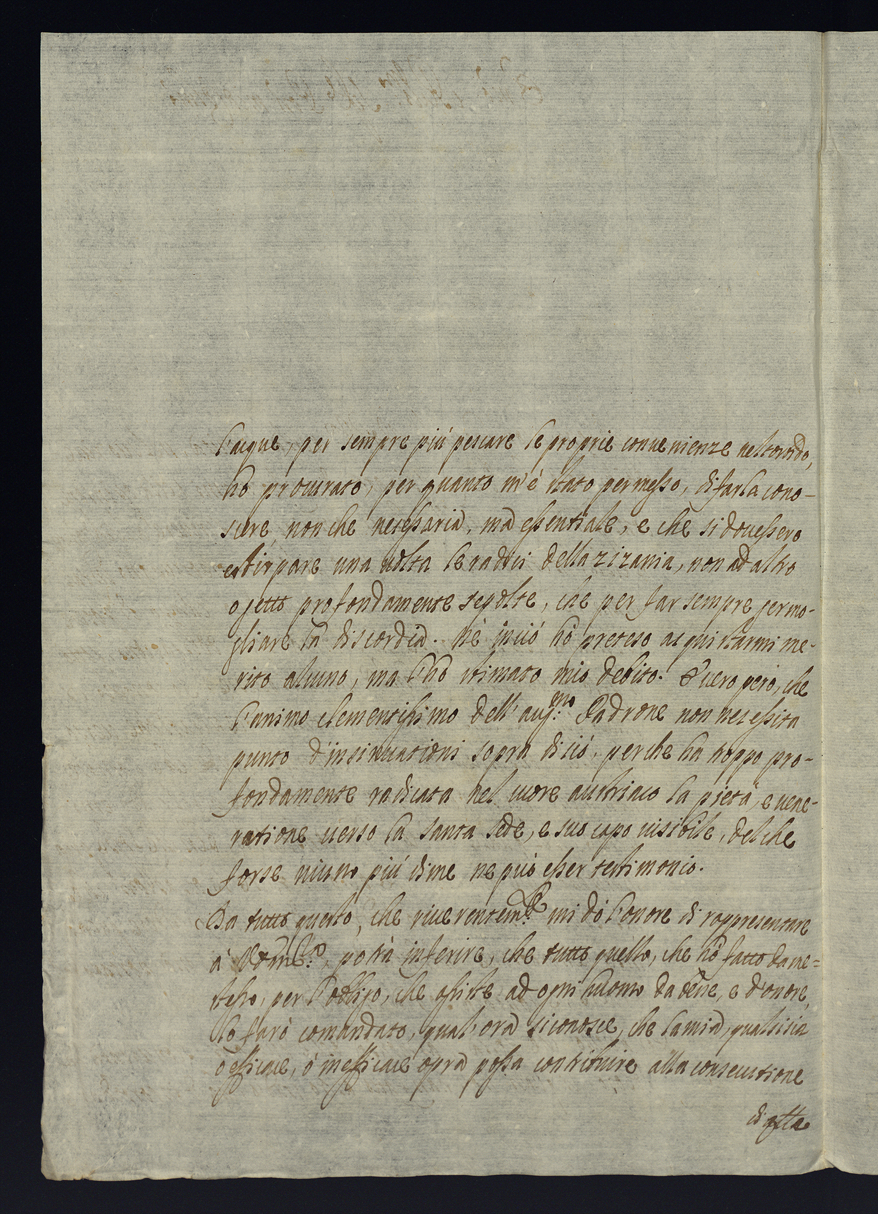 l'acque, per sempre più pescare le proprie convenienze nel torbido,
hò procurato, per quanto m'è stato permesso, di farla cono-
scere, non che necessaria, mà essentiale, e che si dovessero
estirpare una volta le radici della zizania, non ad altro
ogetto profondamente sepolte, che per far sempre germo-
gliare la discordia. Nè in ciò hò preteso acquistarmi me-
rito alcuno, ma l'hò stimato mio debito. È vero però, che
l'animo clementissimo dell'aug.mo Padrone non necessita
punto d'insinuationi sopra di ciò, perche ha troppo pro-
fondamente radicata nel cuore austriaco la pietà, e vene-
ratione verso la santa sede, e suo capo visibile, del che
forse niuno più di me ne può esser testimonio.
Da tutto questo, che riverentem.te mi dò l'onore di rappresentare
à potrà inferire, che tutto quello, che hò fatto da me-
desmo, per l'obligo, che assiste ad ogni huomo da bene, e d'onore,
lo farò comandato, qual'ora si conosce, che la mia, qualsisia
ò efficace, ò inefficace opra possa contribuire alla consecutione
di qsta